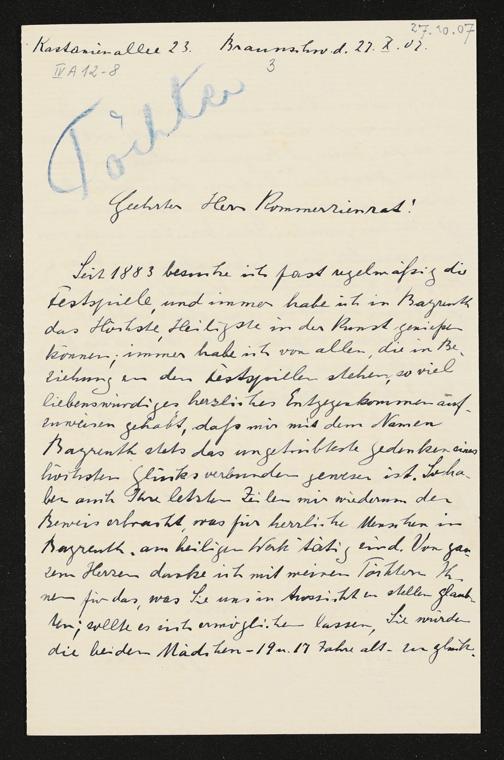 27.10.07
Kastanienallee 23. Braunschw. d. 27. X. 07.
IV A 12-8
3
Töchter
Geehrter Herr Kommerzienrat!
Seit 1883 besuche ich fast regelmäßig die
Festspiele, und immer habe ich in Bayreuth
das Höchste, Heiligste in der Kunst genießen
können; immer habe ich von allen, die in Be-
ziehung zu den Festspielen stehen, so viel
liebenswürdiges herzliches Entgegenkommen auf-
zuweisen gehabt, daß mir mit dem Namen
Bayreuth stets das ungetrübteste Gedenken eines
höchsten Glücks verbunden gewesen ist. So ha-
ben auch Ihre letzten Zeilen mir wiederum den
Beweis erbracht, was für herrliche Menschen in
Bayreuth am heiligen Werk tätig sind. Von gan-
zem Herzen danke ich mit meinen Töchtern Ih-
nen für das, was Sie uns in Aussicht zu stellen glaub-
ten; sollte es sich ermöglichen lassen, Sie würden
die beiden Mädchen - 19 u. 17 Jahre alt - zu glück-